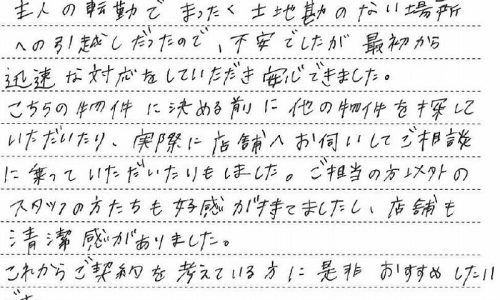 主人の転勤でまったく土地勘のない場所
への引越しだったので、不安でしたが最初から
迅速な対応をしていただき安心できました。
こちらの物件に決める前に他の物件を探して
いただいたり、実際に店舗へお伺いしてご相談
に乗っていただいたりもしました。ご担当の方以外の
スタッフの方たちも好感が持てましたし、店舗も
清潔感がありました。
これからご契約を考えている方に是非おすすめしたい
です